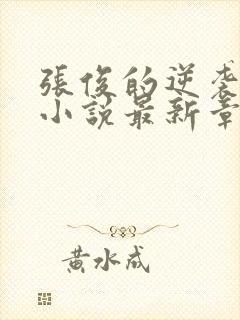 張俊的逆袭
小說最新章
黃水成